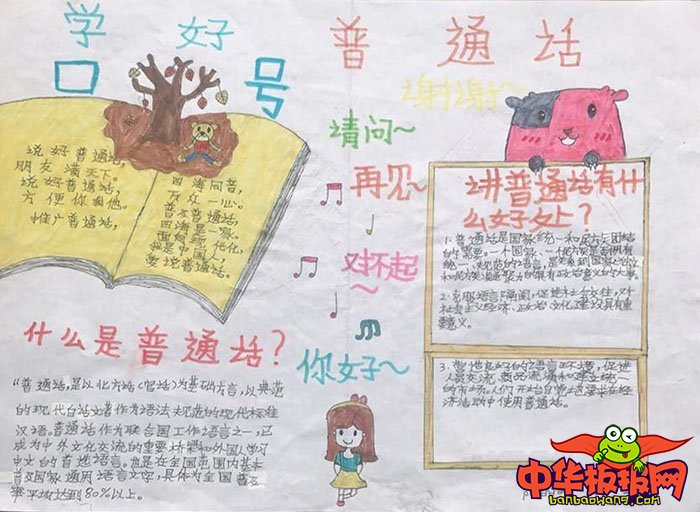 学 好 普 通 话
口 号
说好普通话,
朋友满天下。
说好普通话,
方便你和他。
推广普通话,
四海同音,
万众一心。
普及普通话,
四海是一家。
面向现代化,
我是中国人,
爱说普通话。
谢谢~
请问~
再见~
对不起~
你好~
什么是普通话?
"普通话,是以北方话(官话)为基础方言,以典范
的现代白话文著作为语法规范的现代标准
汉语。普通话作为联合国工作语言之一,已
成为中外文化交流的重要桥梁和外国人学习
中文的首选语言。
在全国范围内基本
普及国家通用语言文字,具体为全国普
率平均达到80%以上。
讲普通话有什
么好处?
1.普通话是国家统一和民族团结
的需要。一个国家、一个民族是否拥有
统一、规范的语言,是关系到国家独立
和民族凝聚力的具有政治意义的大事。
2.克服语言隔阂,促进社会交往,对
社会主义经济、政治、文化建设具有重
要意义。
3.营造良好的语言环境,促进
人员交流,商品流通和建立统一
的市场。人们开始自觉地要求在经
济活动中使用普通话。
中华板报网
banbaowang.com